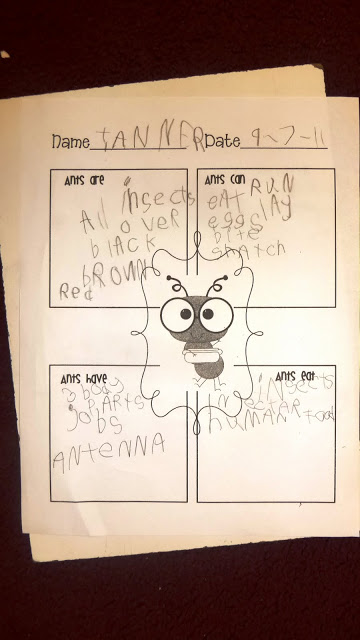 Name TANNER Date 9-7-11
Ants are
insects
All over
black
bROWN
Red
Ants can
eAt RUN
eggs lAy
bite
snatch
Ants have
3 body
pARTS
jobs
ANTeNNA
Ants eat
insects
nectAR
huMAN food